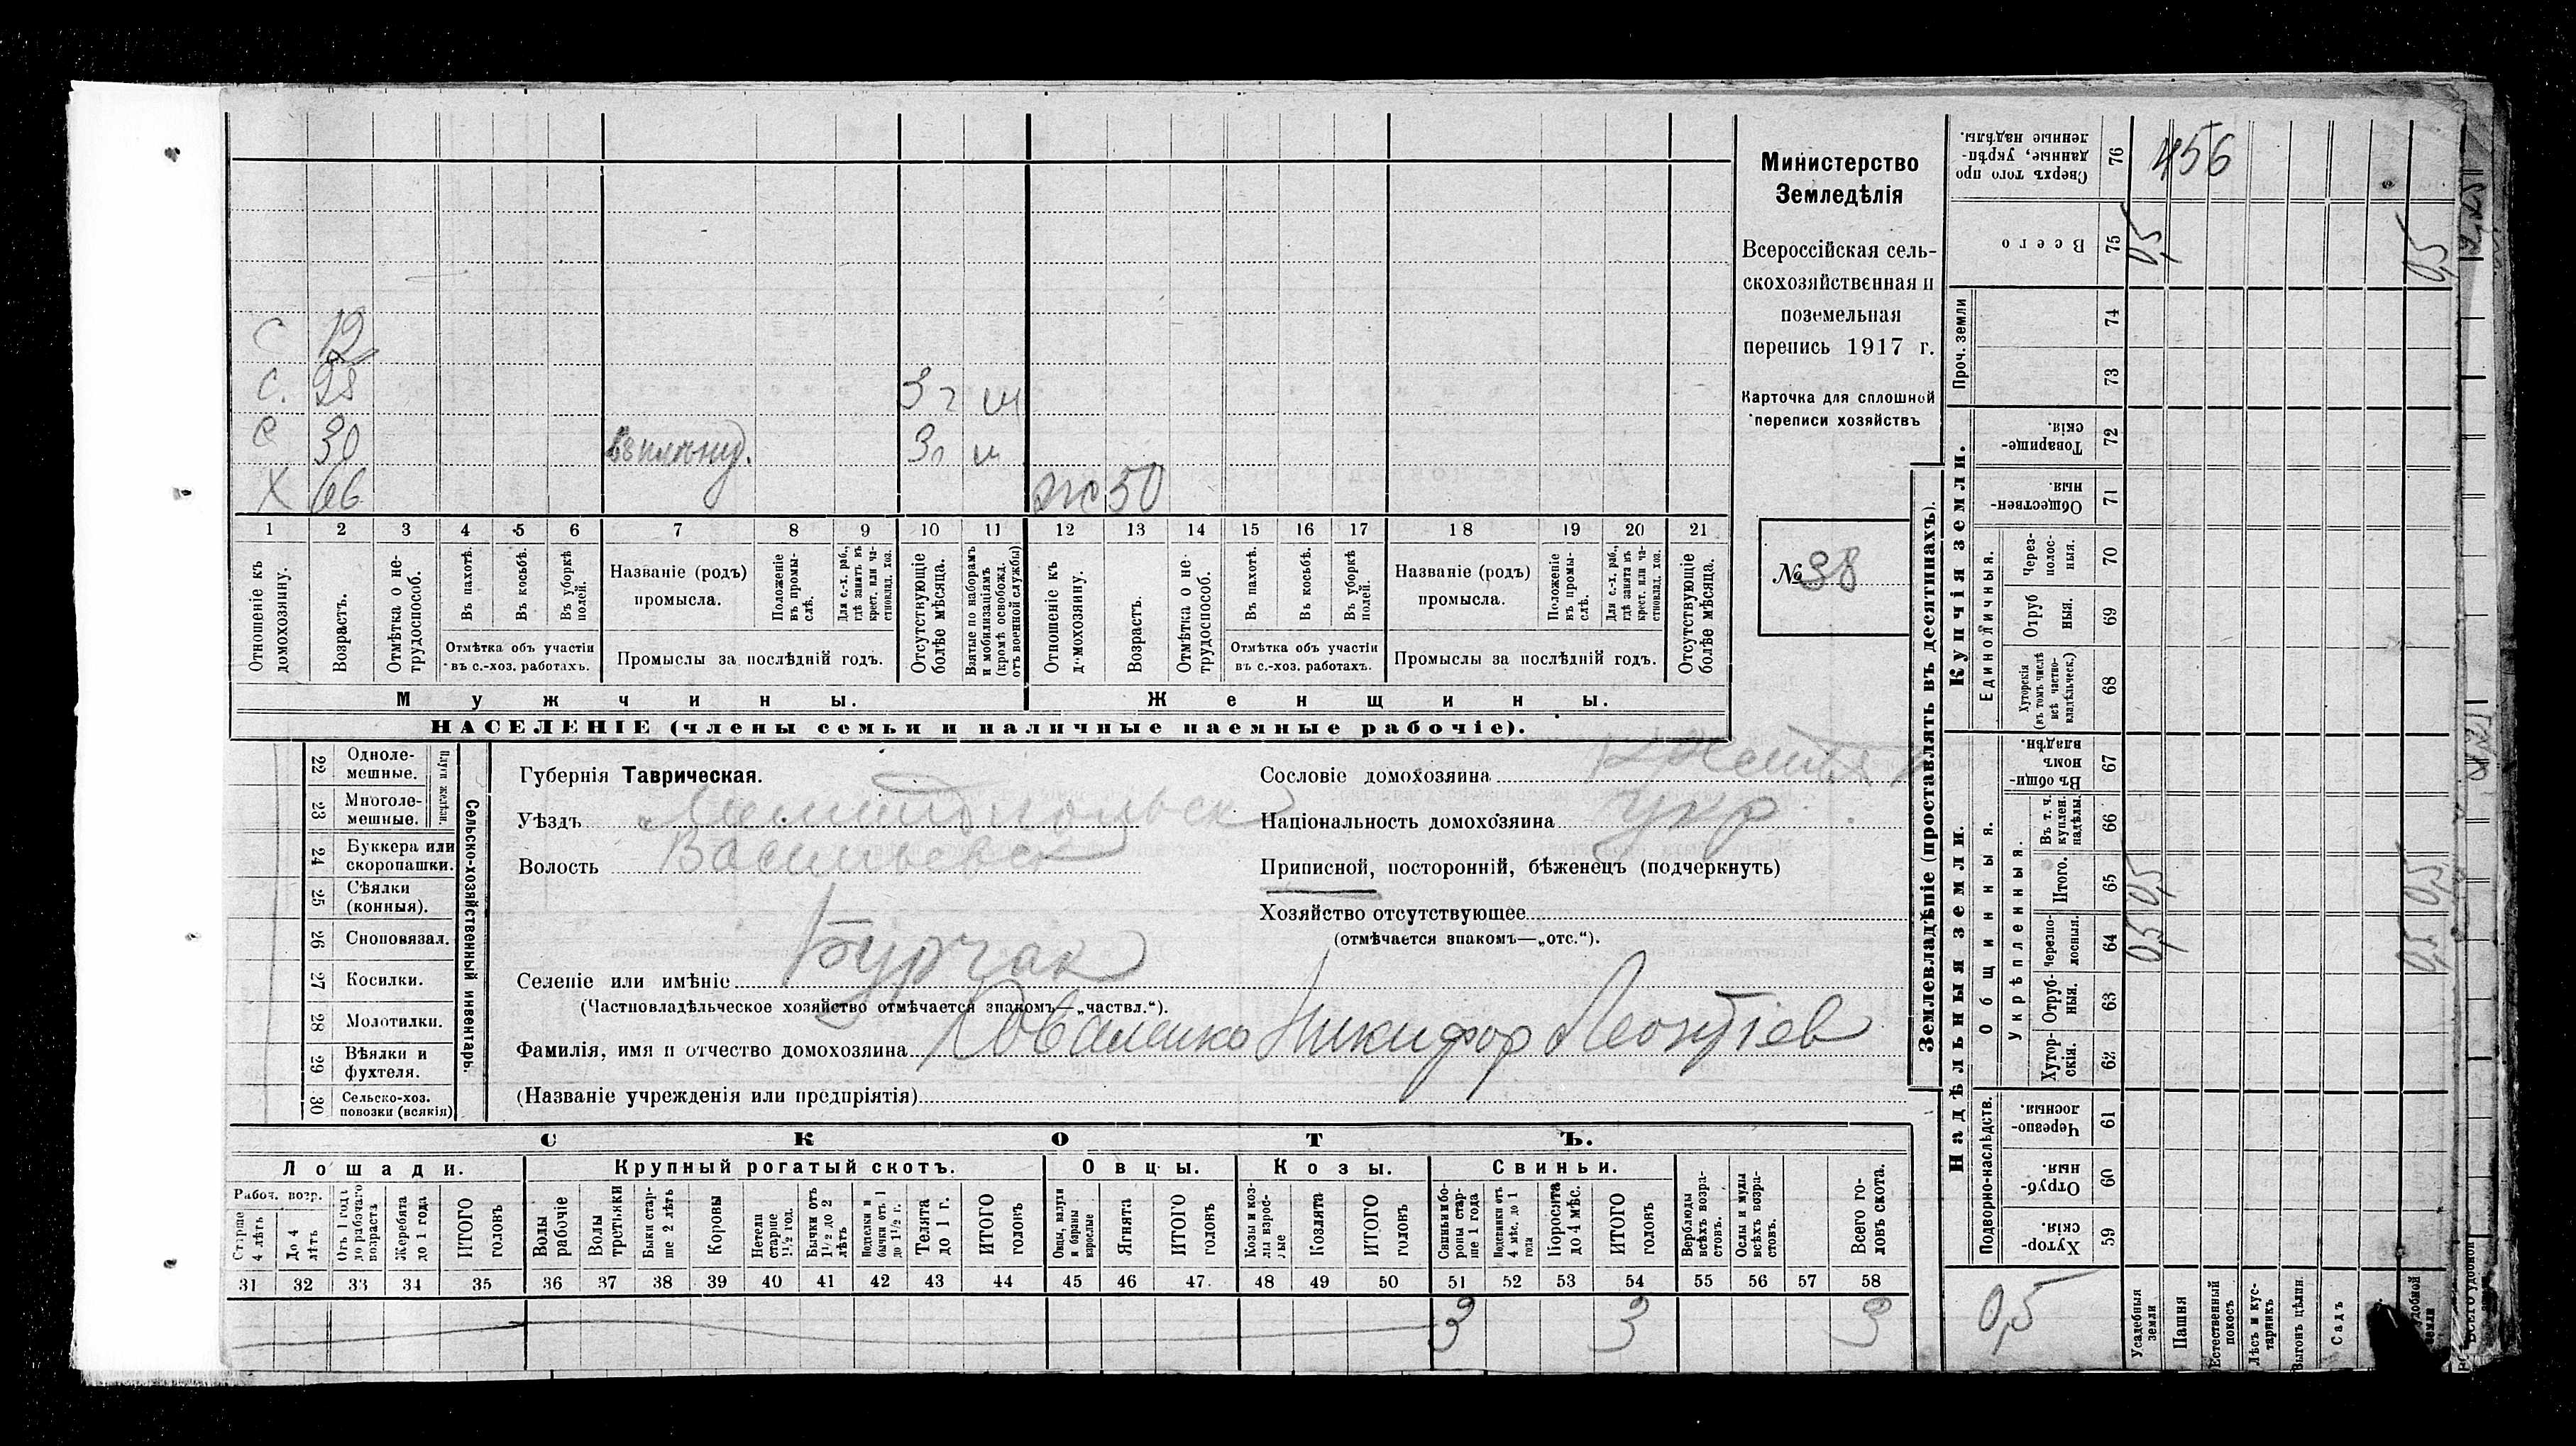 С 12
С. 28 3 г ш
С 30 Въ плѣну. 3 г ш
Х 66 ж 50
1 2 3 4 5 6 7 8 9 10 11 12 13 14 15 16 17 18 19 20 21
Отношеніе къ домохозяину.
Возрастъ.
Отмѣтка о нетрудоспособ.
Въ пахотѣ.
Въ косьбѣ.
Въ уборкѣ полей.
Отмѣтка объ участіи въ с.-хоз. работахъ.
Названіе (родъ) промысла.
Положеніе въ промыслѣ.
Для с.-х. раб., гдѣ занятъ въ крест. или частновлад. хоз.
Промыслы за послѣдній годъ.
Отсутствующіе болѣе мѣсяца.
Взятые по наборамъ и мобилизаціямъ (кромѣ освобожд. отъ военной службы)
Отношеніе къ домохозяину.
Возрастъ.
Отмѣтка о нетрудоспособ.
Въ пахотѣ.
Въ косьбѣ.
Въ уборкѣ полей.
Отмѣтка объ участіи въ с.-хоз. работахъ.
Названіе (родъ) промысла.
Положеніе въ промыслѣ.
Для с.-х. раб., гдѣ занята въ крест. или частновлад. хоз.
Промыслы за послѣдній годъ.
Отсутствующіе болѣе мѣсяца.
Мужчины. Женщины.
НАСЕЛЕНІЕ (члены семьи и наличные наемные рабочіе).
Министерство
Земледѣлія
Всероссійская сель-
скохозяйственная и
поземельная
перепись 1917 г.
Карточка для сплошной
переписи хозяйствъ
№ 38
22 Одноле-мешные.
23 Многоле-мешные.
Плуги желѣзн.
24 Буккера или скоропашки.
25 Сѣялки (конныя).
26 Сноповязал.
27 Косилки.
28 Молотилки.
29 Вѣялки и фухтеля.
30 Сельско-хоз. повозки (всякія)
Сельско-хозяйственный инвентарь.
Губернія Таврическая.
Уѣздъ Мелитопольск
Волость Васильевск
Селеніе или имѣніе Бурчак
(Частновладѣльческое хозяйство отмѣчается знакомъ—„частвл.“).
Фамилія, имя и отчество домохозяина Коваленко Никифор Леонтіев
(Названіе учрежденія или предпріятія)
Сословіе домохозяина
Національность домохозяина укр.
Приписной, посторонній, бѣженецъ (подчеркнуть)
Хозяйство отсутствующее
(отмѣчается знакомъ—„отс.“).
СКОТЪ.
Лошади. Крупный рогатый скотъ. Овцы. Козы. Свиньи.
Рабоч. возр.
Старше 4 лѣтъ
До 4 лѣтъ
Отъ 1 года до рабочаго возраста
Жеребята до 1 года
ИТОГО головъ
Волы рабочіе
Волы третьяки
Быки старше 2 лѣтъ
Коровы
Нетели старше 1½ год.
Бычки отъ 1½ до 2 лѣтъ
Подтелки и бычки отъ 1 до 1½ г.
Телята до 1 г.
ИТОГО головъ
Овцы, валухи и бараны взрослые
Ягнята
ИТОГО головъ
Козы и козлы взрослые
Козлята
ИТОГО головъ
Свиньи и боровы старше 1 года
Подсвинки отъ 4 мѣс. до 1 года
Поросята до 4 мѣс.
ИТОГО головъ
Верблюды всѣхъ возрастовъ.
Ослы и мулы всѣхъ возрастовъ.
Всего головъ скота.
31 32 33 34 35 36 37 38 39 40 41 42 43 44 45 46 47 48 49 50 51 52 53 54 55 56 57 58
3 3 3
Землевладѣніе (проставлять въ десятинахъ).
Купчія земли.
Надѣльныя земли.
Сверхъ того проданные, укрѣпленные надѣлы. 76 456
Всего 75 0,5 0,5
Проч. земли 74
73
Товарищескія. 72
Общественныя. 71
Единоличныя.
Через-полосныя. 70
Отрубныя. 69
Хуторскія (въ томъ числѣ всѣ частновладѣльческ.) 68
Общинныя.
Въ общинномъ владѣн. 67
Укрѣпленныя.
Въ т. ч. куплен. надѣлы. 66
Итого. 65 0,5 0,5
Черезполосныя. 64 0,5 0,5
Отрубныя. 63
Хуторскія. 62
Подворно-наслѣдств.
Черезполосныя. 61
Отрубныя. 60
Хуторскія. 59
0,5
Усадебныя земли
Пашня
Естественный покосъ
Лѣсъ и кустарникъ
Выгонъ цѣлин.
Садъ
удобной земли